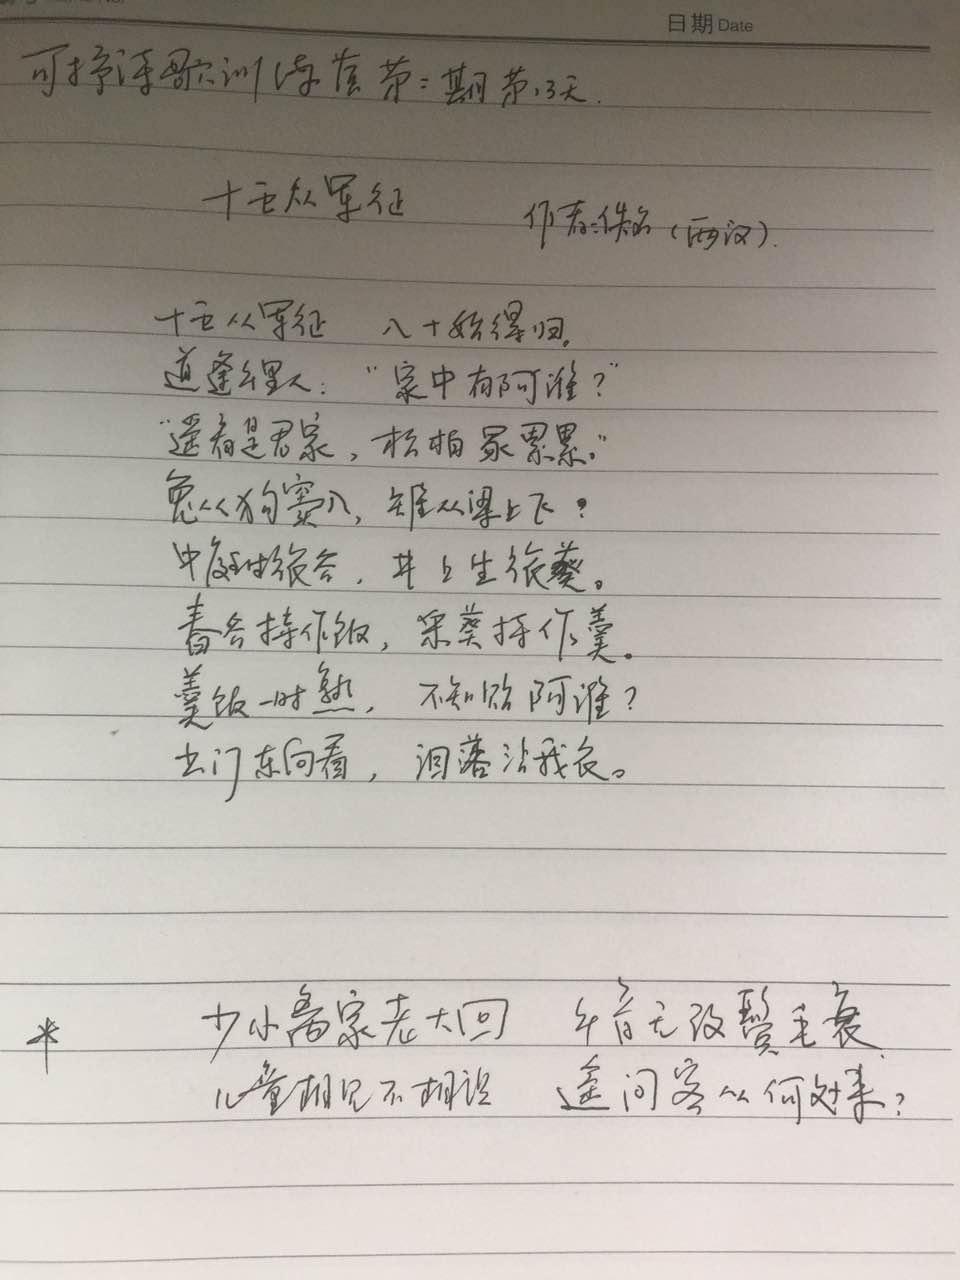 日期 Date
可抒诗歌训练营第二期第13天.
十五从军征 作者:佚名(西汉).
十五从军征 八十始得归.
道逢乡里人:“家中有阿谁?”
“遥看是君家,松柏冢累累。”
兔从狗窦入,雉从梁上飞?
中庭生旅谷,井上生旅葵。
舂谷持作饭,采葵持作羹。
羹饭一时熟,不知贻阿谁?
出门东向看,泪落沾我衣。
* 少小离家老大回 乡音无改鬓毛衰.
儿童相见不相识 遥问客从何处来?